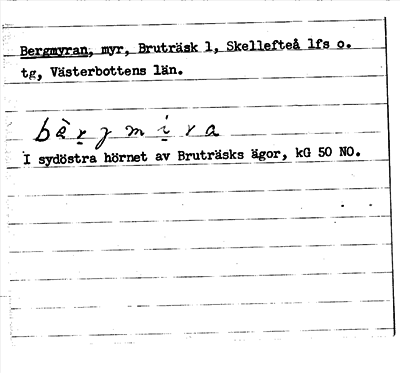 Bergmyran, myr, Bruträsk 1, Skellefteå lfs o.
tg, Västerbottens län.
bèr̠ȷ m i̠̇ r a
I sydöstra hörnet av Bruträsks ägor, kG 50 NO.